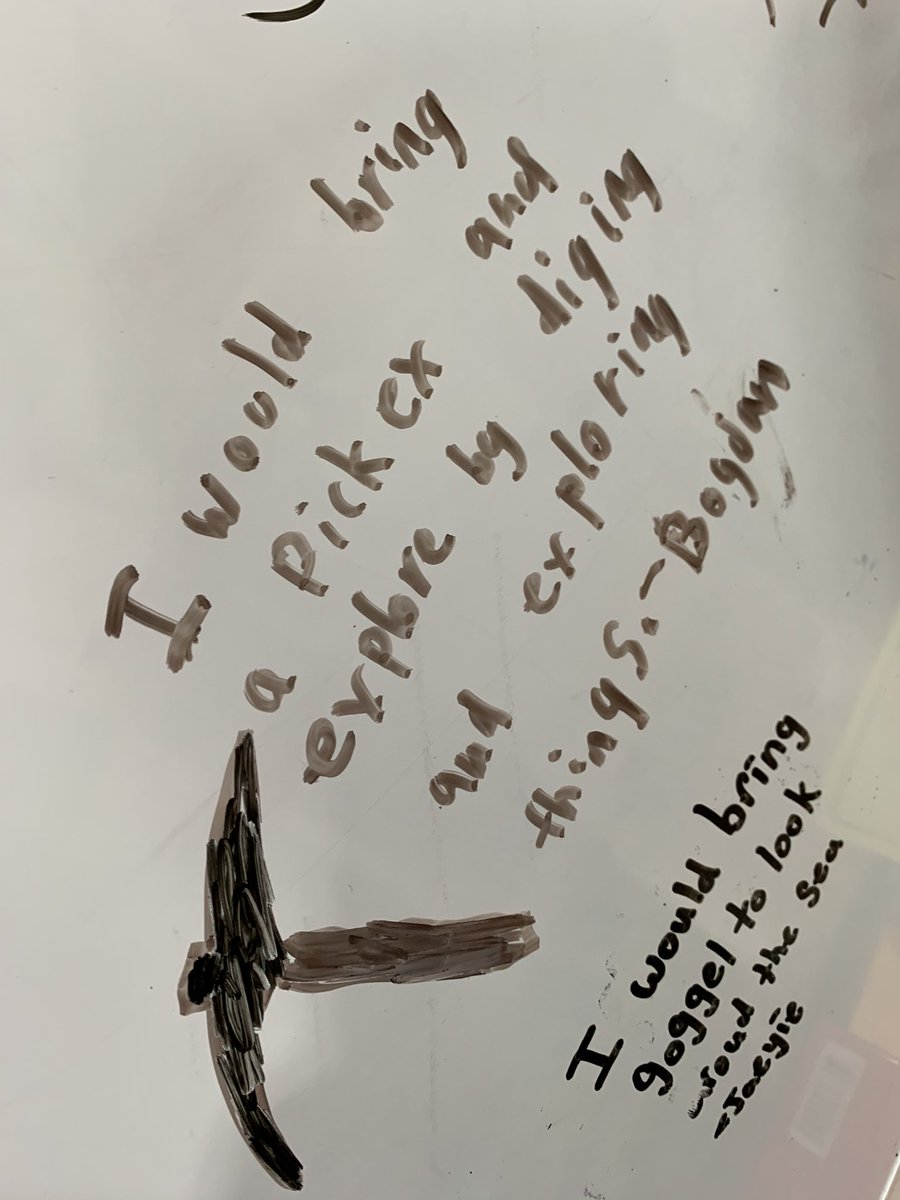 I would bring
a pick ex and
explore by diging
and exploring
things. - Bogdan
I would bring
goggel to look
aroud the sea
- Jaeyie